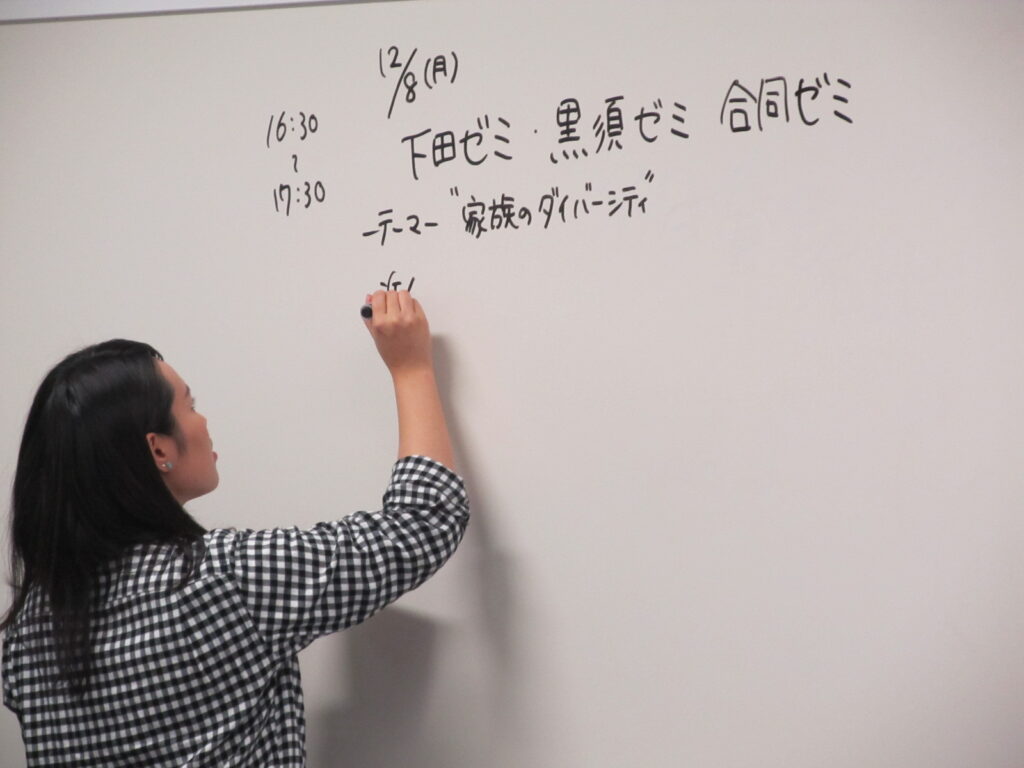 12/8(月)
16:30
~
17:30
下田ゼミ・黒須ゼミ 合同ゼミ
テーマー "家族のダイバーシティ"